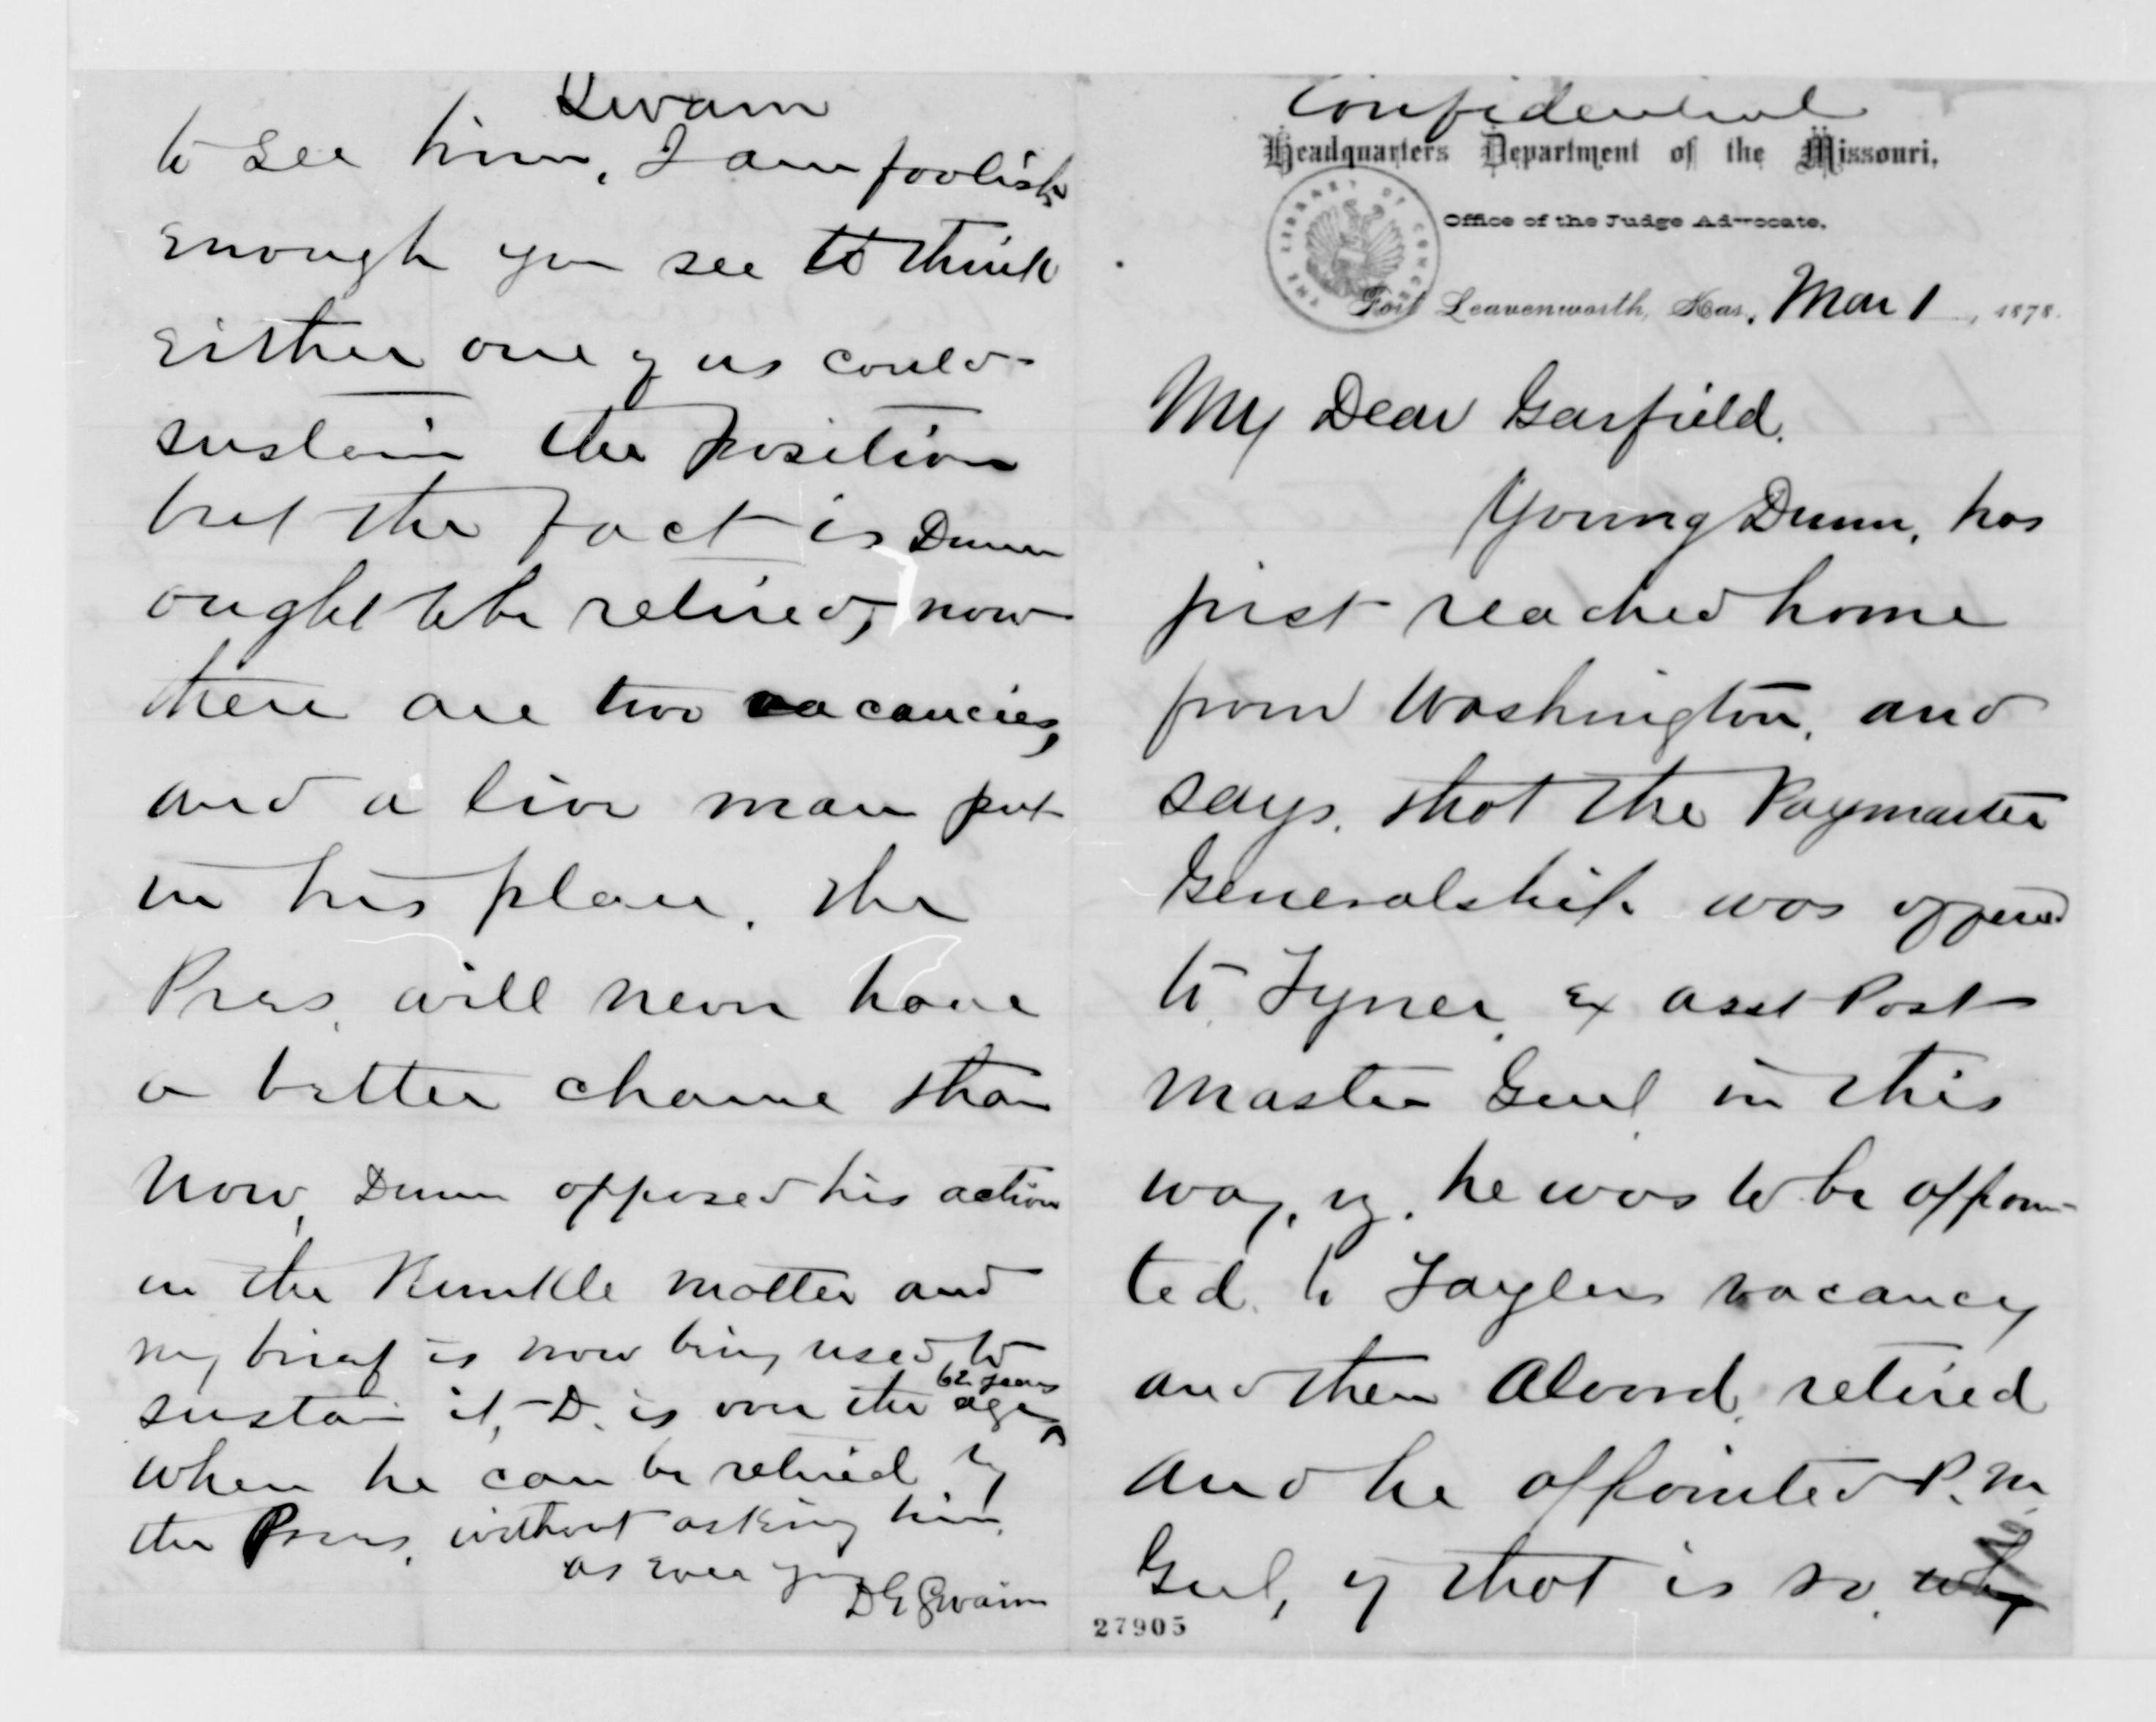 Confidential
Headquarters Department of the Missouri,
Office of the Judge Advocate,
THE LIBRARY OF CONGRESS
Fort Leavenworth, Kas., Mar 1, 1878.
My Dear Garfield.
Young Dunn, has
just reached home
from Washington, and
says, that the Paymaster
Generalship was offered
to Tyner, Ex asst Post
master Genl in this
way, viz. he was to be appoin-
ted to Taylers vacancy
and then Alvord, retired
and he appointed P. M.
Genl, if that is so, why
27905
Swaim
to see him, I am foolish
enough you see to think
either one of us could
sustain the position
but the fact is Dunn
ought to be retired, now
there are two vacancies,
and a live man put
in his place. The
Pres. will never have
a better chance than
now, Dunn opposed his action
in the Runkle matter and
my brief is now being used to
sustain it, - D. is over the age 62 years
when he can be retired by
the Pres, without asking him.
as ever yours
D G Swaim